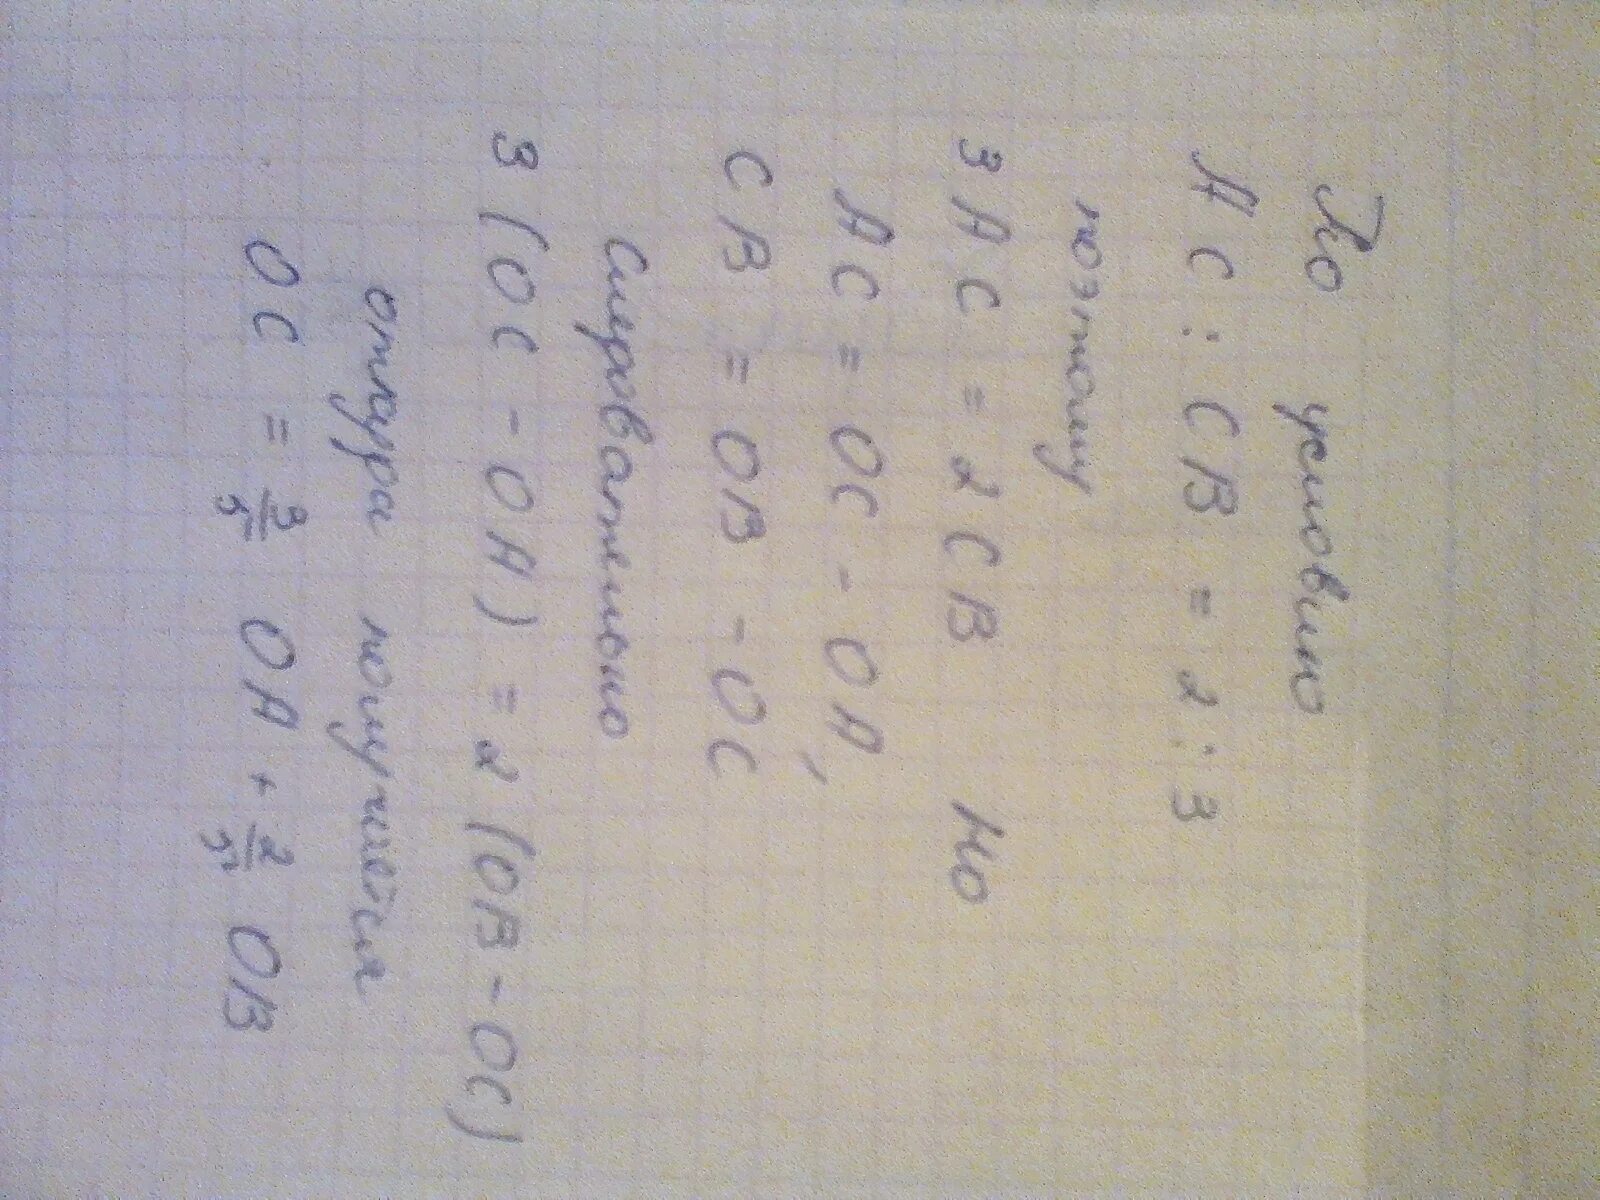 По условию
AC : CB = 2 : 3
поэтому
3AC = 2CB Но
AC = OC - OA,
CB = OB - OC
Следовательно
3(OC - OA) = 2(OB - OC)
откуда получается
OC = 3/5 OA + 2/5 OB